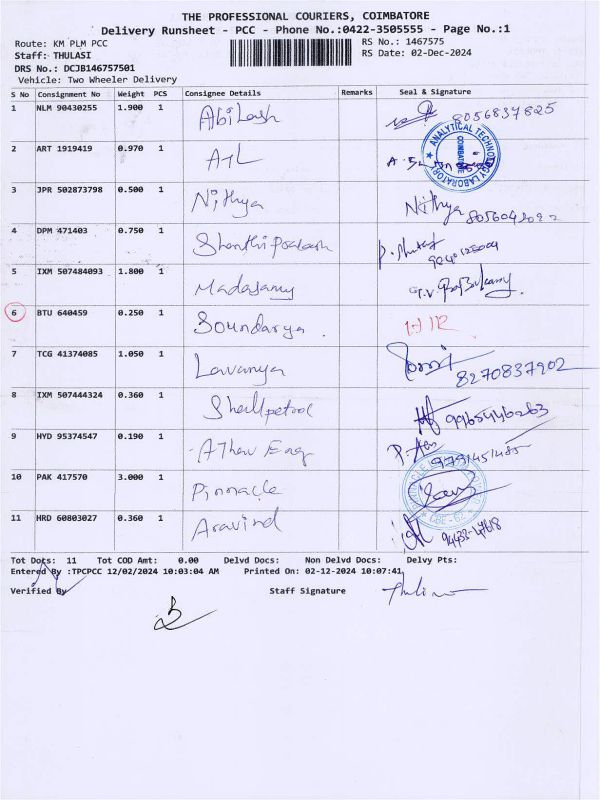 THE PROFESSIONAL COURIERS, COIMBATORE
Delivery Runsheet - PCC - Phone No.:0422-3505555 - Page No.:1
Route: KM PLM PCC
RS No.: 1467575
Staff: THULASI
RS Date: 02-Dec-2024
DRS No.: DCJB146757501
Vehicle: Two Wheeler Delivery
S No Consignment No Weight PCS Consignee Details Remarks Seal & Signature
1 NLM 90430255 1.900 1 Abilash 8056837825
2 ART 1919419 0.970 1 ATL
ANALYTICAL TECHNOLOGY LABORATORY
COIMBATORE
3 JPR 502873798 0.500 1 Nithya Nithya
4 DPM 471403 0.750 1 Shanthi Prakash
5 IXM 507484093 1.800 1 Madasamy
6 BTU 640459 0.250 1 Soundarya
7 TCG 41374085 1.050 1 Lavanya 8270837902
8 IXM 507444324 0.360 1 Shellpetrol 9965446263
9 HYD 95374547 0.190 1 Athav Eng 9791451485
10 PAK 417570 3.000 1 Pinnacle
11 HRD 60803027 0.360 1 Aravind
Tot Dots: 11 Tot COD Amt: 0.00 Delvd Docs: Non Delvd Docs: Delvy Pts:
Entered By :TPCPCC 12/02/2024 10:03:04 AM Printed On: 02-12-2024 10:07:41
Verified By Staff Signature